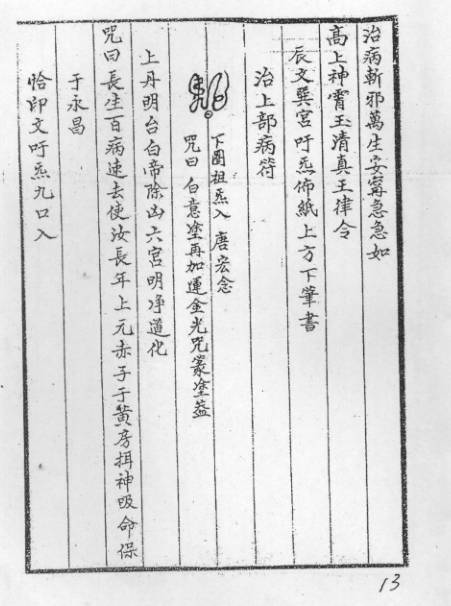 治病斬邪萬生安寗急急如
高上神霄玉清真王律令
辰文巽宮吁炁佈紙上方下筆書
治上部病符
下圈祖炁入 唐宏念
咒曰 白意塗再加運金光咒蒙塗蓋
上丹明台白帝除凶六宮明净道化
咒曰長生百病速去使汝長年上元赤子于黃房神吸命保
于永昌
恰印文吁炁九口入
13